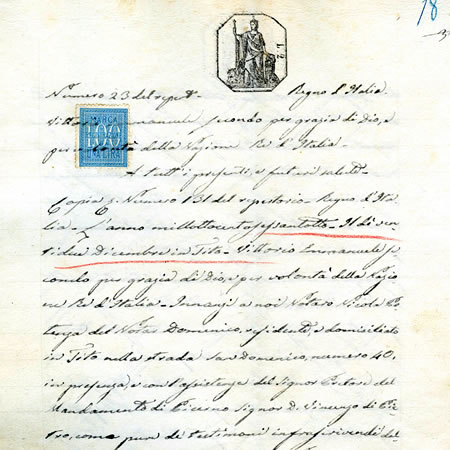 18
Numero 23 del repert.o Regno d'Italia
Vittorio Emmanuele secondo per grazia di Dio, e
MARCA
1.00
UNA LIRA
L 2
per volontà della Nazione Re d'Italia.
A tutti i presenti, e futuri salute.
Copia = Numero 131 del repertorio - Regno d'Ita
lia - L'anno millottocentosessantotto - Il dì ven
tidue Dicembre in Tito - Vittorio Emmanuele se
condo per grazia di Dio, e per volontà della Nazio
ne Re d'Italia - Innanzi a noi Notaro Nicola
del Notar Domenico, residente, e domiciliato
in Tito nella strada San Domenico, numero 40,
in presenza, e con l'assistenza del Signor Pretore del
Mandamento di Picerno Signor D. Vincenzo di
come pure de' testimoni infrascrivendi